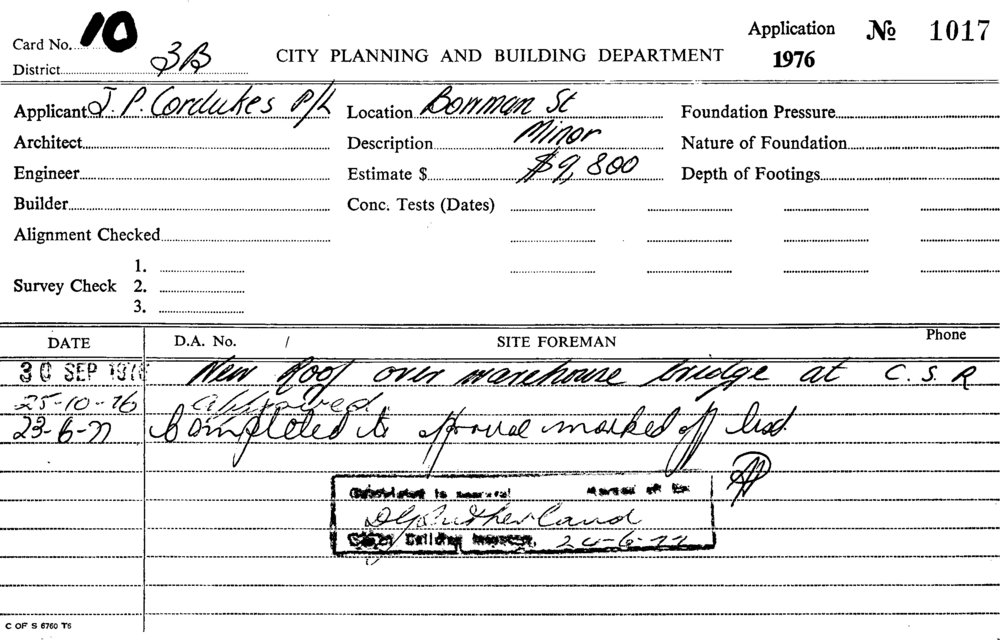 Card No. 10
Application № 1017
District 3B
CITY PLANNING AND BUILDING DEPARTMENT
1976
Applicant J. P. Cordukes P/L
Location Bowman St
Foundation Pressure
Architect
Description Minor
Nature of Foundation
Engineer
Estimate $ $9,800
Depth of Footings
Builder
Conc. Tests (Dates)
Alignment Checked
1.
Survey Check 2.
3.
DATE D.A. No. / SITE FOREMAN Phone
30 SEP 1976 New Roof over warehouse bridge at C.S.R
25-10-76 Approved.
23-6-77 Completed to approval marked off list
Completed to approval Marked off
DGRutherland
Building Inspector, 24-6-77
C OF S 6760 T6